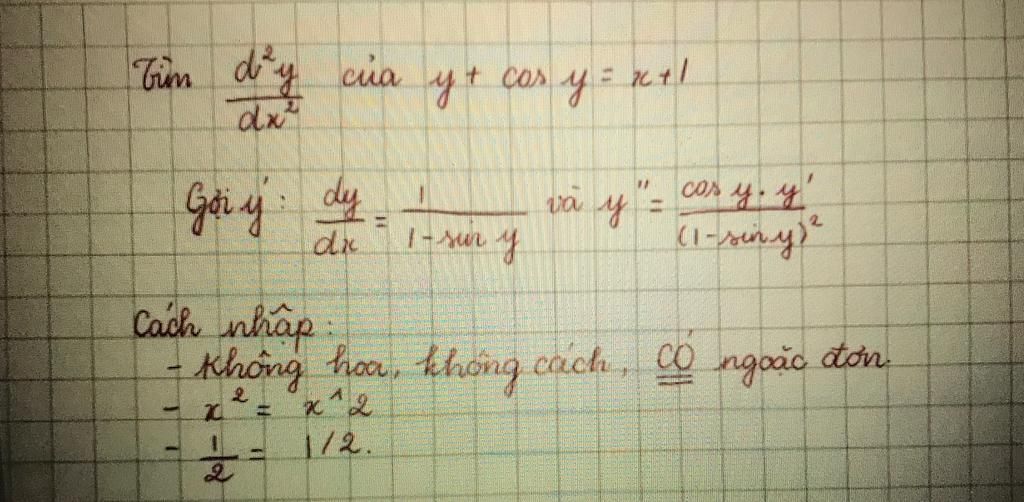 Tìm d²y/dx² của y + cos y = x + 1
Gợi ý: dy/dx = 1/(1 - sin y) và y" = (cos y . y')/(1 - sin y)²
Cách nhập:
- Không hoa, không cách, CÓ ngoặc đơn.
- x² = x^2
- 1/2 = 1/2.